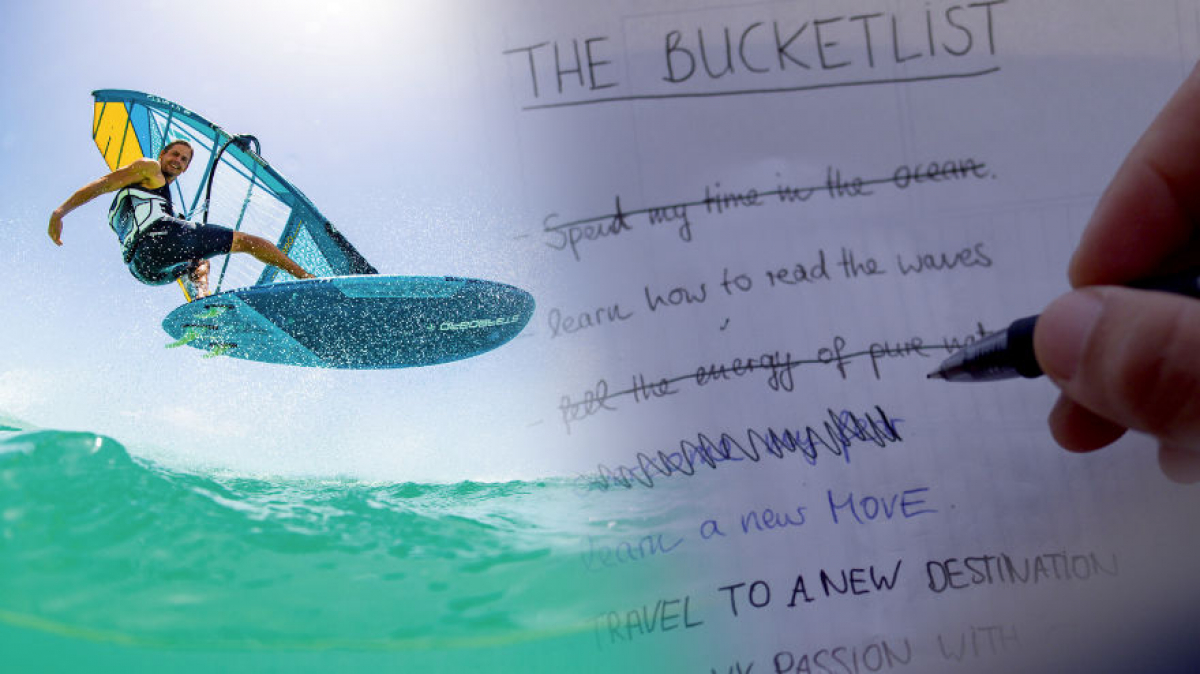 THE BUCKETLIST
- Spend my time in the ocean.
- learn how to read the waves
- feel the energy of pure
learn a new MOVE.
TRAVEL TO A NEW DESTINATION
PASSION WITH
STARBOARD